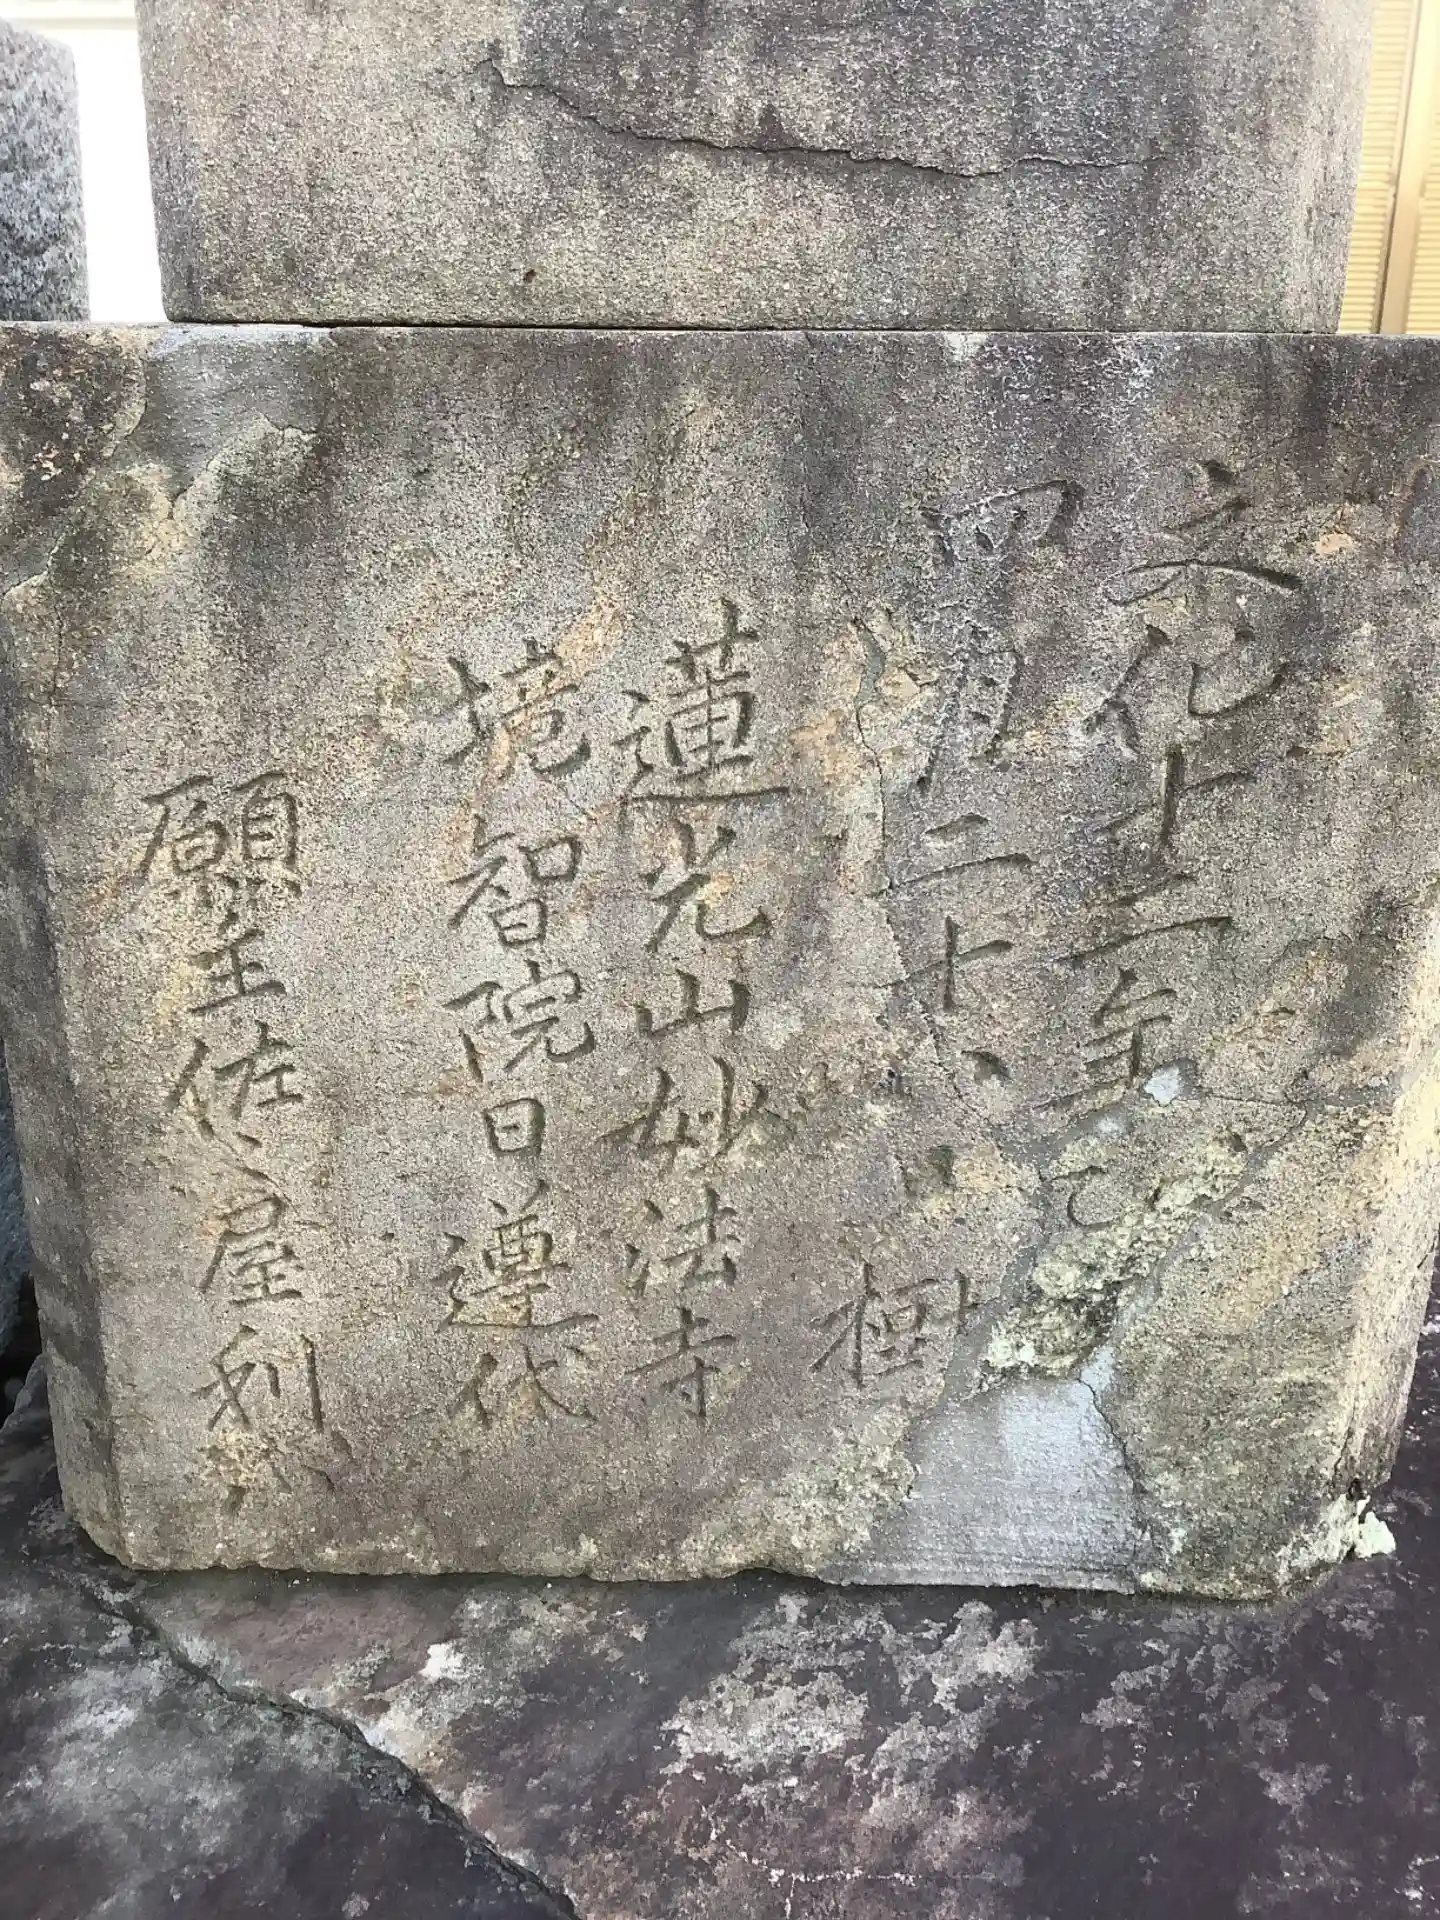 文化十二年乙
四月二十八日樹
蓮光山妙法寺
境智院日遵代
願主佐屋利八